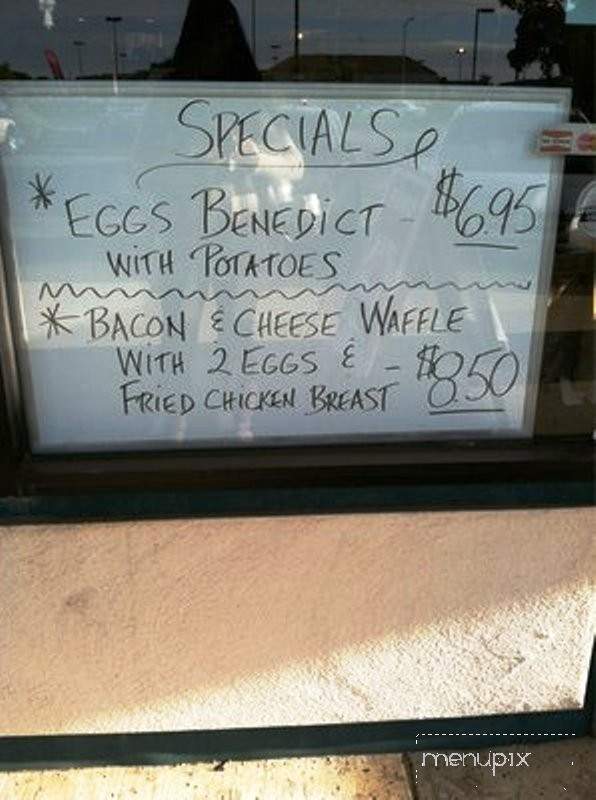 SPECIALS
* EGGS BENEDICT - $6.95
WITH POTATOES
* BACON & CHEESE WAFFLE
WITH 2 EGGS & - $8.50
FRIED CHICKEN BREAST
menupix